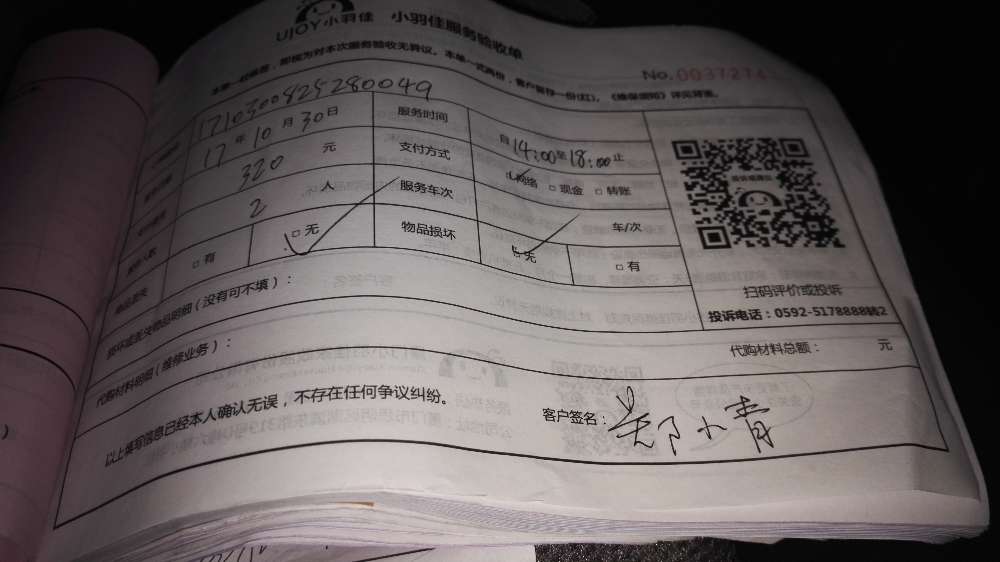 UJOY小羽佳 小羽佳服务验收单
No.0037274
本单一经签署,即视为对本次服务验收无异议。本单一式两份,客户留存一份(红),《维保须知》详见背面。
1710300825280049
17年10月30日 服务时间 自14:00至18:00止
320 元 支付方式 网络 □现金 □转账
2 人 服务车次 车/次
物品丢失 □有 □无 物品损坏 □无 □有
损坏或丢失物品明细(没有可不填):
扫码评价或投诉
投诉电话:0592-5178888转2
代购材料明细(维修业务): 代购材料总额: 元
以上填写信息已经本人确认无误,不存在任何争议纠纷。
客户签名:郑小青